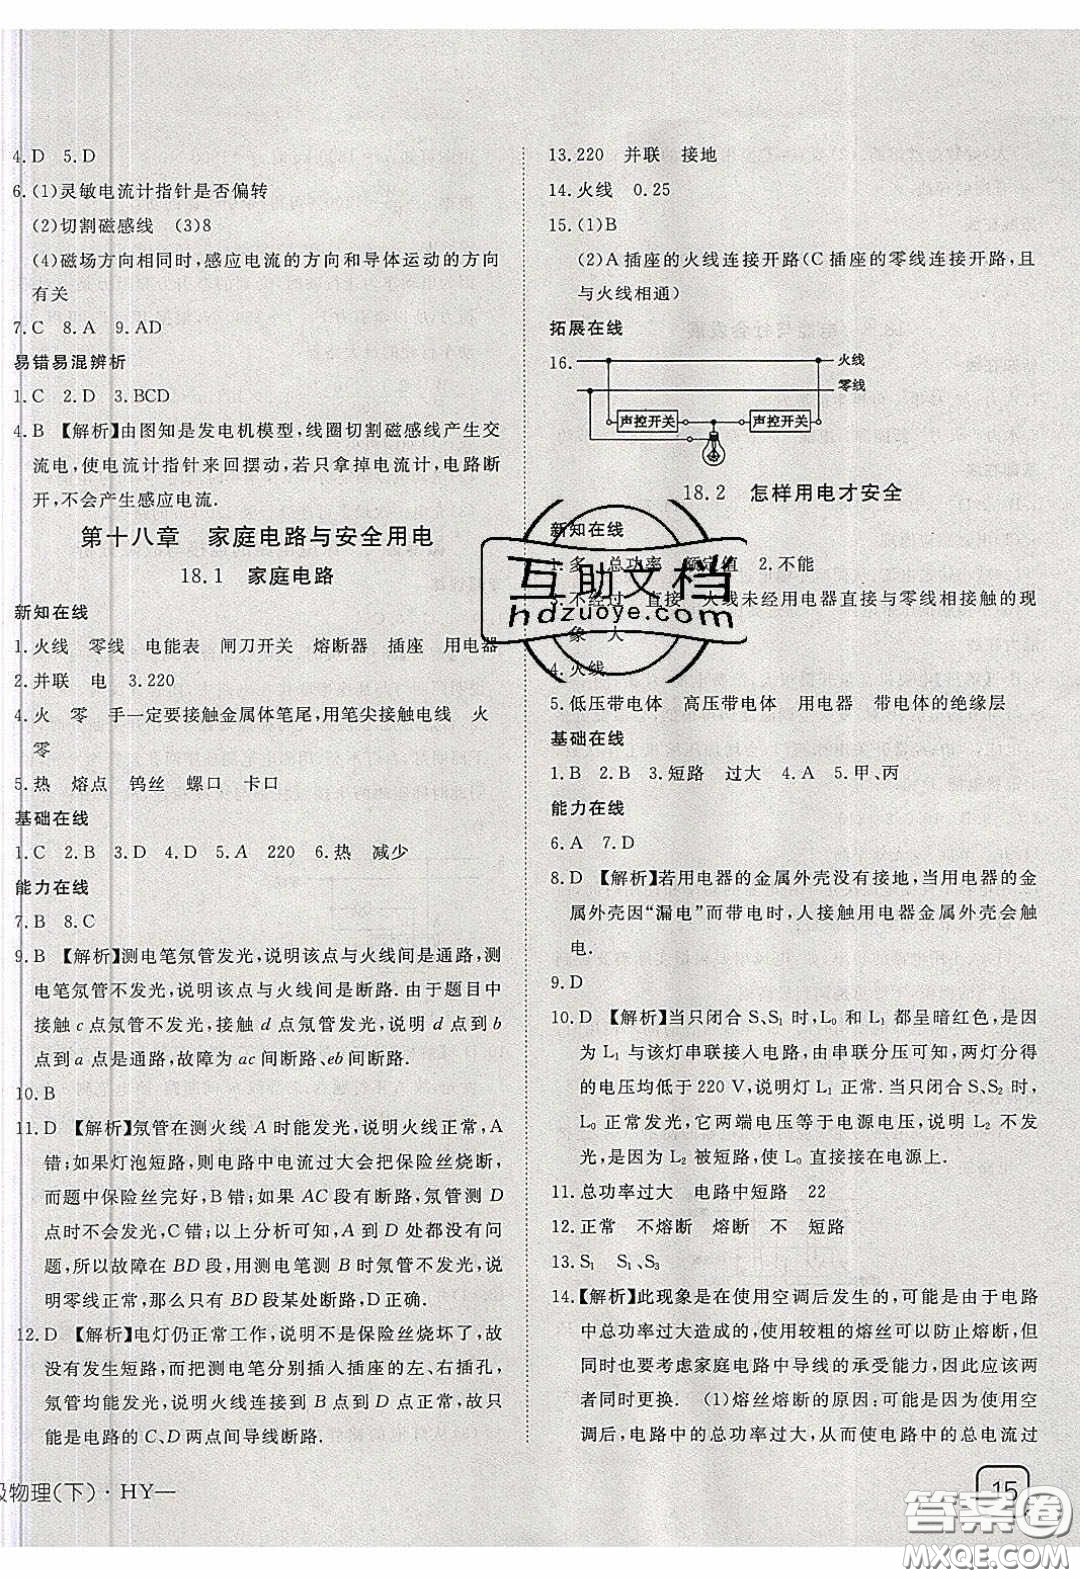 4. D 5. D
6. (1)灵敏电流计指针是否偏转
(2)切割磁感线 (3)8
(4)磁场方向相同时,感应电流的方向和导体运动的方向
有关
7. C 8. A 9. AD
易错易混辨析
1. C 2. D 3. BCD
4. B 【解析】由图知是发电机模型,线圈切割磁感线产生交
流电,使电流计指针来回摆动,若只拿掉电流计,电路断
开,不会产生感应电流.
第十八章 家庭电路与安全用电
18.1 家庭电路
新知在线
1. 火线 零线 电能表 闸刀开关 熔断器 插座 用电器
2. 并联 电 3. 220
4. 火 零 手一定要接触金属体笔尾,用笔尖接触电线 火
零
5. 热 熔点 钨丝 螺口 卡口
基础在线
1. C 2. B 3. D 4. D 5. A 220 6. 热 减少
能力在线
7. B 8. C
9. B 【解析】测电笔氖管发光,说明该点与火线间是通路,测
电笔氖管不发光,说明该点与火线间是断路. 由于题目中
接触 c 点氖管不发光,接触 d 点氖管发光,说明 d 点到 b
点到 a 点是通路,故障为 ac 间断路、eb 间断路.
10. B
11. D 【解析】氖管在测火线 A 时能发光,说明火线正常,A
错;如果灯泡短路,则电路中电流过大会把保险丝烧断,
而题中保险丝完好,B 错;如果 AC 段有断路,氖管测 D
点时不会发光,C 错;以上分析可知,A 到 D 处都没有问
题,所以故障在 BD 段,用测电笔测 B 时氖管不发光,说
明零线正常,那么只有 BD 段某处断路,D 正确.
12. D 【解析】电灯仍正常工作,说明不是保险丝烧坏了,故
没有发生短路,而把测电笔分别插入插座的左、右插孔,
氖管均能发光,说明火线连接到 B 点到 D 点正常,只可
能是电路的 C、D 两点间导线断路.
级物理(下) · HY—
13. 220 并联 接地
14. 火线 0.25
15. (1)B
(2)A 插座的火线连接开路(C 插座的零线连接开路,且
与火线相通)
拓展在线
16.
火线
零线
声控开关 声控开关
18.2 怎样用电才安全
新知在线
1. 多 总功率 额定值 2. 不能
3. 不经过 直接 火线未经用电器直接与零线相接触的现
象 大
4. 火线
5. 低压带电体 高压带电体 用电器 带电体的绝缘层
基础在线
1. B 2. B 3. 短路 过大 4. A 5. 甲、丙
能力在线
6. A 7. D
8. D 【解析】若用电器的金属外壳没有接地,当用电器的金
属外壳因“漏电”而带电时,人接触用电器金属外壳会触
电.
9. D
10. D 【解析】当只闭合 S、S₁ 时,L₀ 和 L₁ 都呈暗红色,是因
为 L₁ 与该灯串联接入电路,由串联分压可知,两灯分得
的电压均低于 220 V,说明灯 L₁ 正常. 当只闭合 S、S₂ 时,
L₀ 正常发光,它两端电压等于电源电压,说明 L₂ 不发
光,是因为 L₂ 被短路,使 L₀ 直接接在电源上.
11. 总功率过大 电路中短路 22
12. 正常 不熔断 熔断 不 短路
13. S₁ S₁、S₃
14. 【解析】此现象是在使用空调后发生的,可能是由于电路
中总功率过大造成的,使用较粗的熔丝可以防止熔断,但
同时也要考虑家庭电路中导线的承受能力,因此应该两
者同时更换. (1)熔丝熔断的原因:可能是因为使用空
调后,电路中的总功率过大,从而使电路中的总电流过
15
互助文档
hdzuoye.com
答案圈
MXQE.COM